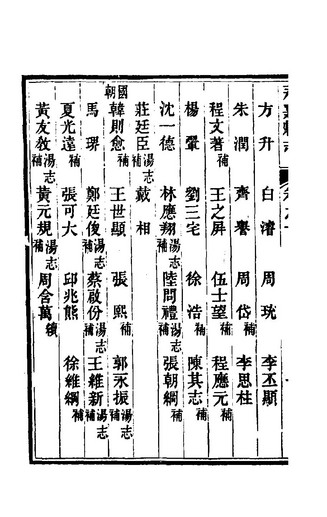 方升 白濬 周珫 李丕顯
朱潤 齊譽 周岱補 李思柱
程文著補 王之屏 伍士望補 程應元補
楊鞏 劉三宅 徐浩補 陳其志補
沈一德 林應翔湯志補 陸問禮補 張朝綱補
莊廷臣湯志補 戴相
國朝
韓則愈補 王世顯 張熙補 郭永振湯志補
馬琾 鄭廷俊湯志補 蔡啟份湯志補 王維新湯志補
夏光達補 張可大 邱兆熊 徐維綱補
黃友教湯志補 黃元規湯志補 周含萬續